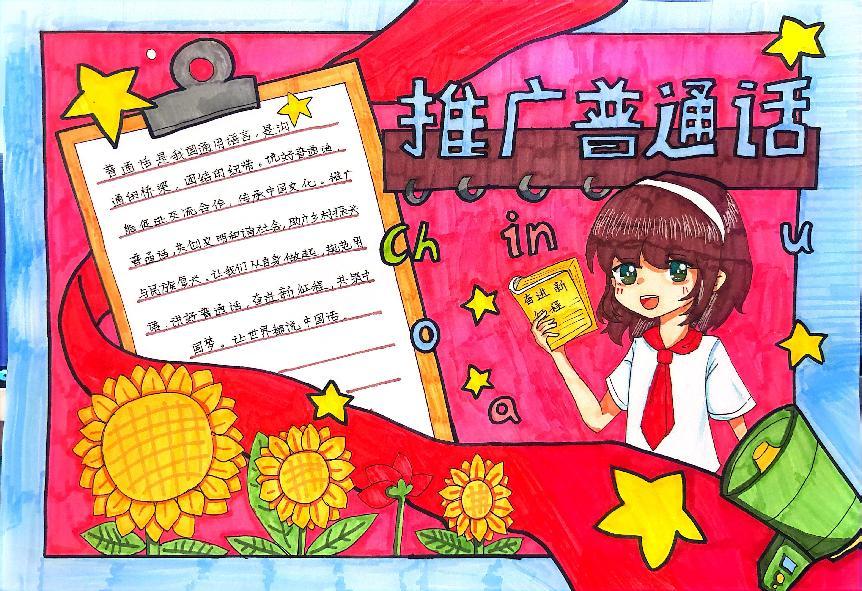 推广普通话
普通话是我国通用语言,是沟
通的桥梁,团结的纽带。说好普通话,
能促进交流合作,传承中国文化。推广
普通话,共创文明和谐社会,助力乡村振兴
与民族复兴。让我们从自身做起,规范用
语,讲好普通话,奋进新征程,共筑中
国梦。让世界都说中国话。
ch
in
u
o
a
奋进新
征程